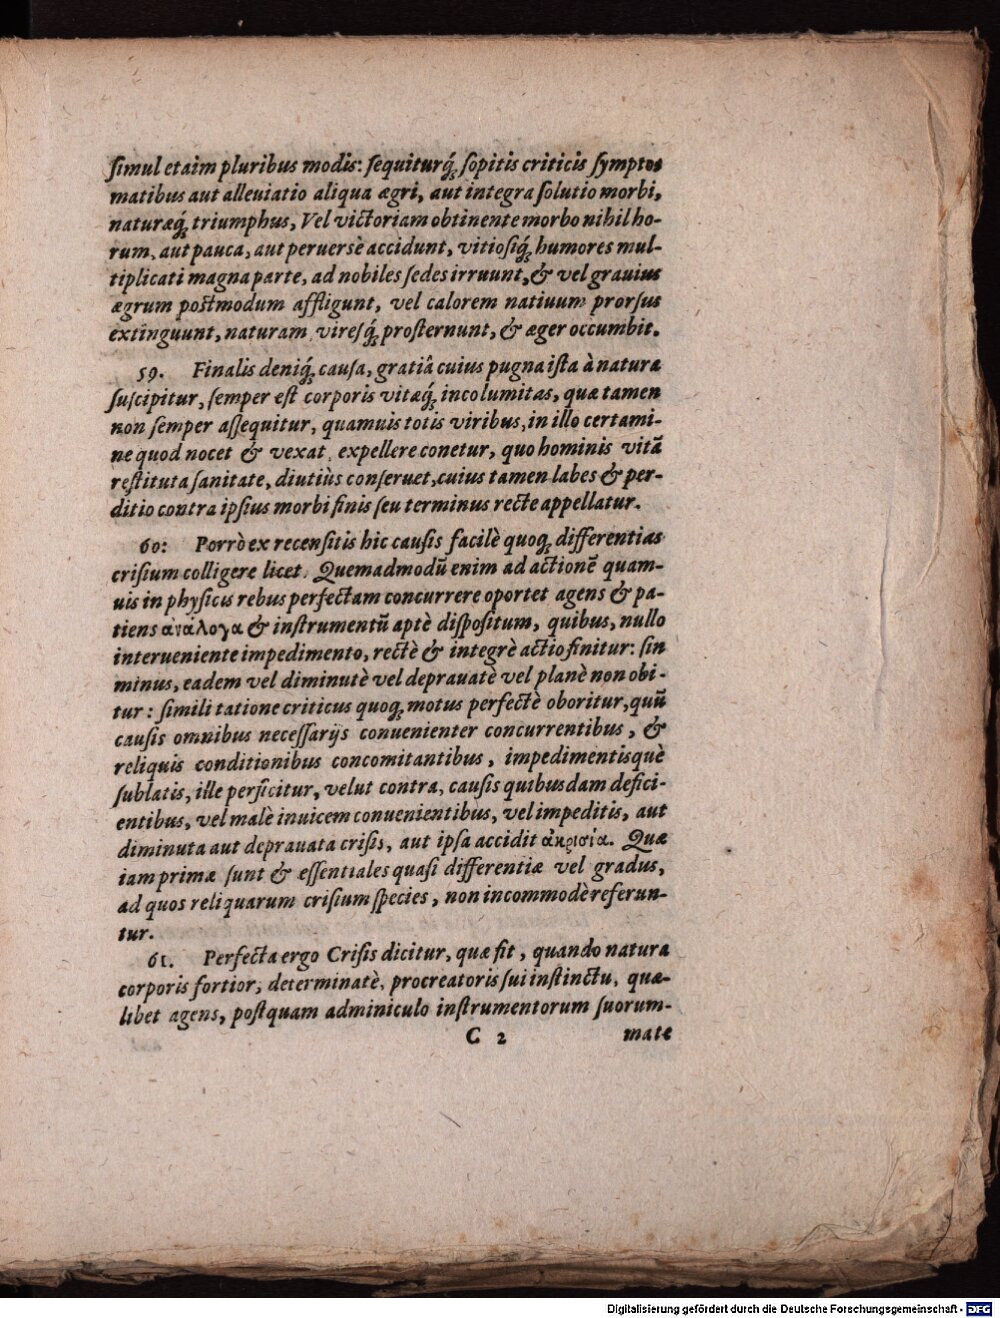 simul etaim pluribus modis: sequiturq́; sopitis criticis sympto-
matibus aut alleuiatio aliqua ægri, aut integra solutio morbi,
naturæq́; triumphus, Vel victoriam obtinente morbo nihil ho-
rum, aut pauca, aut peruersè accidunt, vitiosiq́; humores mul-
tiplicati magna parte, ad nobiles sedes irruunt, & vel grauius
ægrum postmodum affligunt, vel calorem natiuum prorsus
extinguunt, naturam viresq́; prosternunt, & æger occumbit.
59. Finalis deniq́; causa, gratiâ cuius pugna ista à natura
suscipitur, semper est corporis vitæq́; incolumitas, quæ tamen
non semper assequitur, quamuis totis viribus, in illo certami-
ne quod nocet & vexat, expellere conetur, quo hominis vitã
restituta sanitate, diutiùs conseruet, cuius tamen labes & per-
ditio contra ipsius morbi finis seu terminus recte appellatur.
60: Porrò ex recensitis hic causis facilè quoq; differentias
crisium colligere licet. Quemadmodũ enim ad actionẽ quam-
uis in physicis rebus perfectam concurrere oportet agens & pa-
tiens ἀνάλογα & instrumentũ aptè dispositum, quibus, nullo
interueniente impedimento, rectè & integrè actio finitur: sin
minus, eadem vel diminutè vel deprauatè vel planè non obi-
tur: simili tatione criticus quoq; motus perfectè oboritur, quũ
causis omnibus necessarijs conuenienter concurrentibus, &
reliquis conditionibus concomitantibus, impedimentisquè
sublatis, ille perficitur, velut contra, causis quibusdam defici-
entibus, vel malè inuicem conuenientibus, vel impeditis, aut
diminuta aut deprauata crisis, aut ipsa accidit ἀκρισία. Quæ
iam primæ sunt & essentiales quasi differentiæ vel gradus,
ad quos reliquarum crisium species, non incommodè referun-
tur.
61. Perfecta ergo Crisis dicitur, quæ fit, quando natura
corporis fortior, determinatè, procreatoris sui instinctu, quæ-
libet agens, postquam adminiculo instrumentorum suorum-
C 2 mate
Digitalisierung gefördert durch die Deutsche Forschungsgemeinschaft - DFG